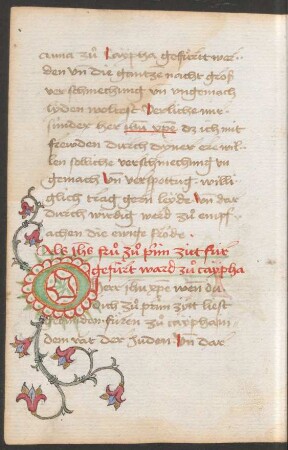 anna zů Caypha gefůrt wer
den vn̄ die gantze nacht groß
verschmechung vn̄ vngemach
lyden woltest Verliche mir
sünder her ihu xp̄e dz ich mit
fröwden durch dyner ere wil
len soliche verschmechung vn̄
gemach Vn̄ verspottūg willi
glich trag gern lyde Vn̄ dar
durch wirdig werd zů empf
achen die ewige fröde
Als ihs frů zů prim ziit für
gefürt ward zů caypha
O herr ihū xpē wen du
dich zů prim zytt liest
füren zů caypham
dem rat der Juden Vn̄ dar